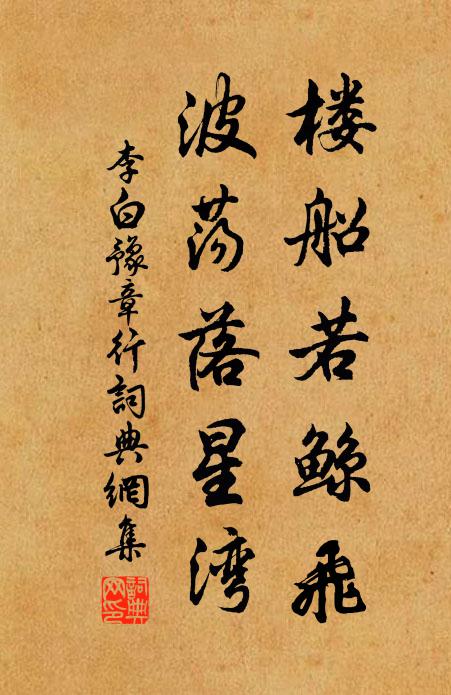 楼船若鲸飛
波荡落星湾
李白豫章行詞典網集
詞典
网印